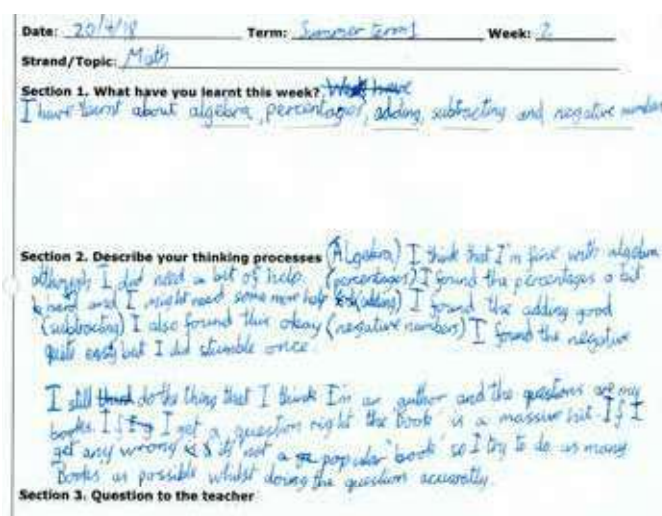 Date: 20/4/18 Term: Summer term1 Week: 2
Strand/Topic: Math
Section 1. What have you learnt this week? What have
I have learnt about algebra, percentages, adding, subtracting and negative number
Section 2. Describe your thinking processes (Algebra) I think that I'm fine with algebra
although I did need a bit of help. (percentages) I found the percentages a bit
hard and I might need some more help (adding) I found the adding good
(subtracting) I also found this okay (negative numbers) I found the negative
quite easy but I did stumble once.
I still think do the thing that I think I'm an author and the questions are my
books. If I get a question right the 'book' is a massive hit. If I
get any wrong it's not a popular 'book' so I try to do as many
Books as possible whilst doing the question accuratly.
Section 3. Question to the teacher